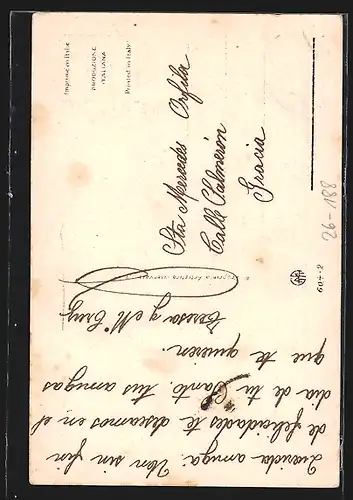 Imprimé en Italie
PRODUZIONE
ITALIANA
Printed in Italy
Sta Mercedes Orfila
Calle Salmerón
Gracia
Querida amiga: Un sin fin
de felicidades te deseamos en el
dia de tu Santo. tus amigas
que te quieren.
Teresa y Mª Cruz
26-188
607-2